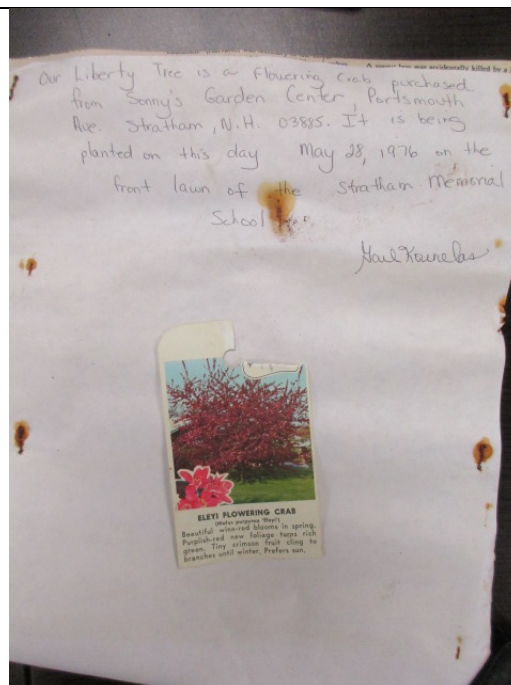 A young boy was accidentally killed by a
Our Liberty Tree is a flowering crab purchased
from Sonny's Garden Center, Portsmouth
Ave. Stratham, N.H. 03885. It is being
planted on this day May 28, 1976 on the
front lawn of the Stratham Memorial
School
Gail Kounelas
ELEYI FLOWERING CRAB
(Malus purpurea 'Eleyi')
Beautiful wine-red blooms in spring.
Purplish-red new foliage turns rich
green. Tiny crimson fruit cling to
branches until winter. Prefers sun.